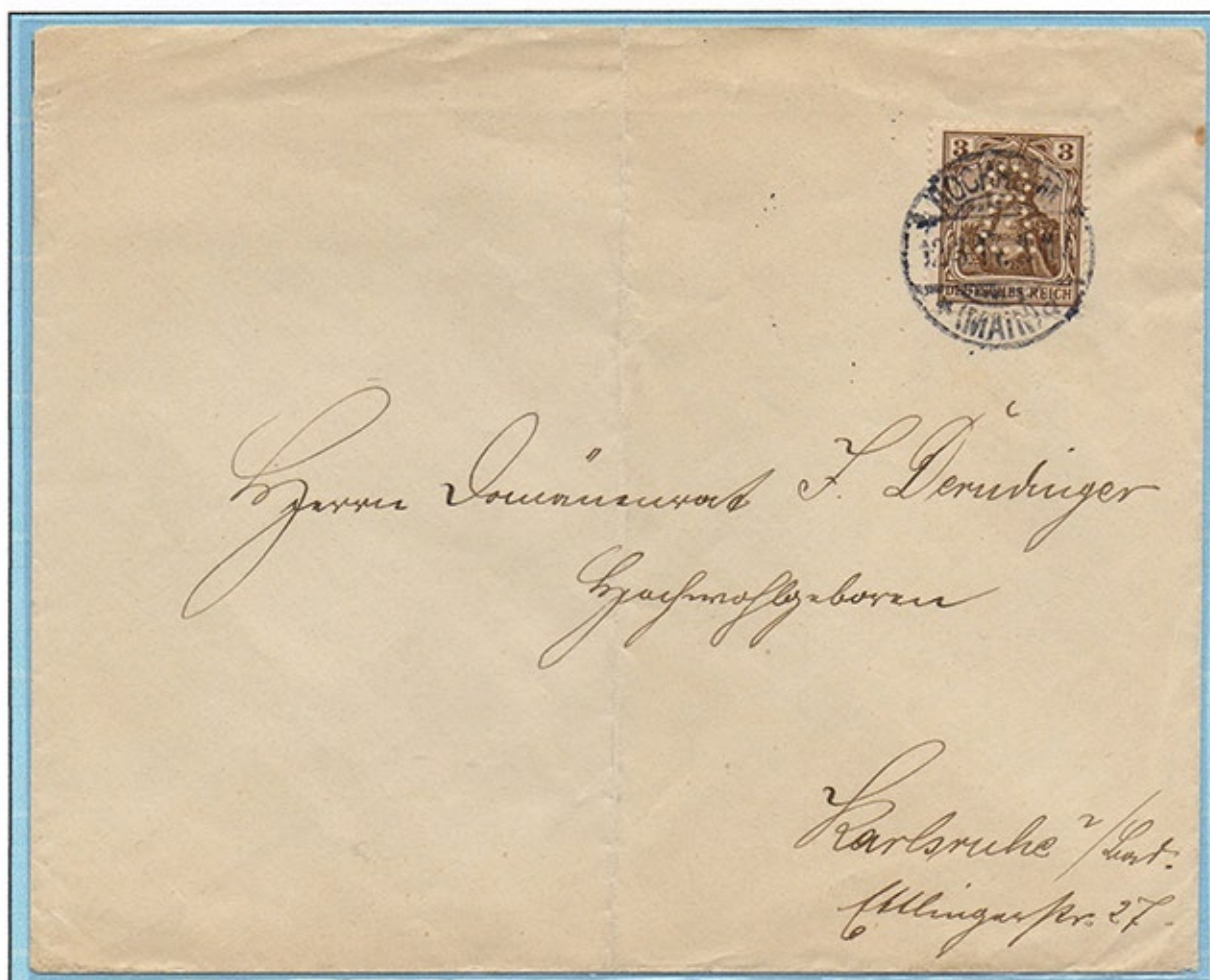 3 3
DEUTSCHES REICH
(MAIN)
Herrn Domänenrat F. Derndinger
Hochwohlgeboren
Karlsruhe i/Bad.
Ettlingerstr. 27